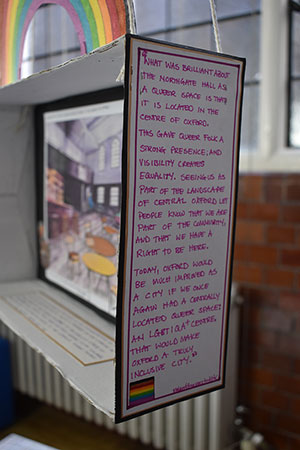 "WHAT WAS BRILLIANT ABOUT
THE NORTHGATE HALL AS
A QUEER SPACE IS THAT
IT IS LOCATED IN THE
CENTRE OF OXFORD.
THIS GAVE QUEER FOLK A
STRONG PRESENCE; AND
VISIBILITY CREATES
EQUALITY. SEEING US AS
PART OF THE LANDSCAPE
OF CENTRAL OXFORD LET
PEOPLE KNOW THAT WE ARE
PART OF THE COMMUNITY,
AND THAT WE HAVE A
RIGHT TO BE HERE.
TODAY, OXFORD WOULD
BE MUCH IMPROVED AS
A CITY IF WE ONCE
AGAIN HAD A CENTRALLY
LOCATED QUEER SPACE!
AN LGBTIQA+ CENTRE.
THAT WOULD MAKE
OXFORD A TRULY
INCLUSIVE CITY."